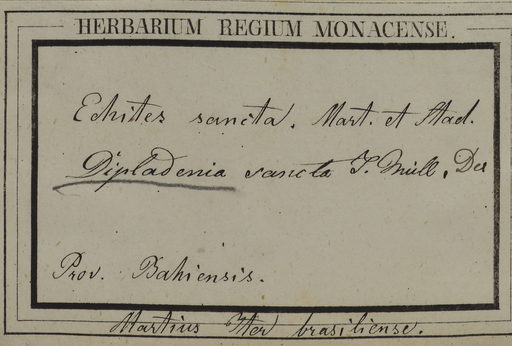 HERBARIUM REGIUM MONACENSE.
Echites sancta. Mart. et Stad.
Dipladenia sancta J. Müll. Der
Prov. Bahiensis.
Martius Iter brasiliense.